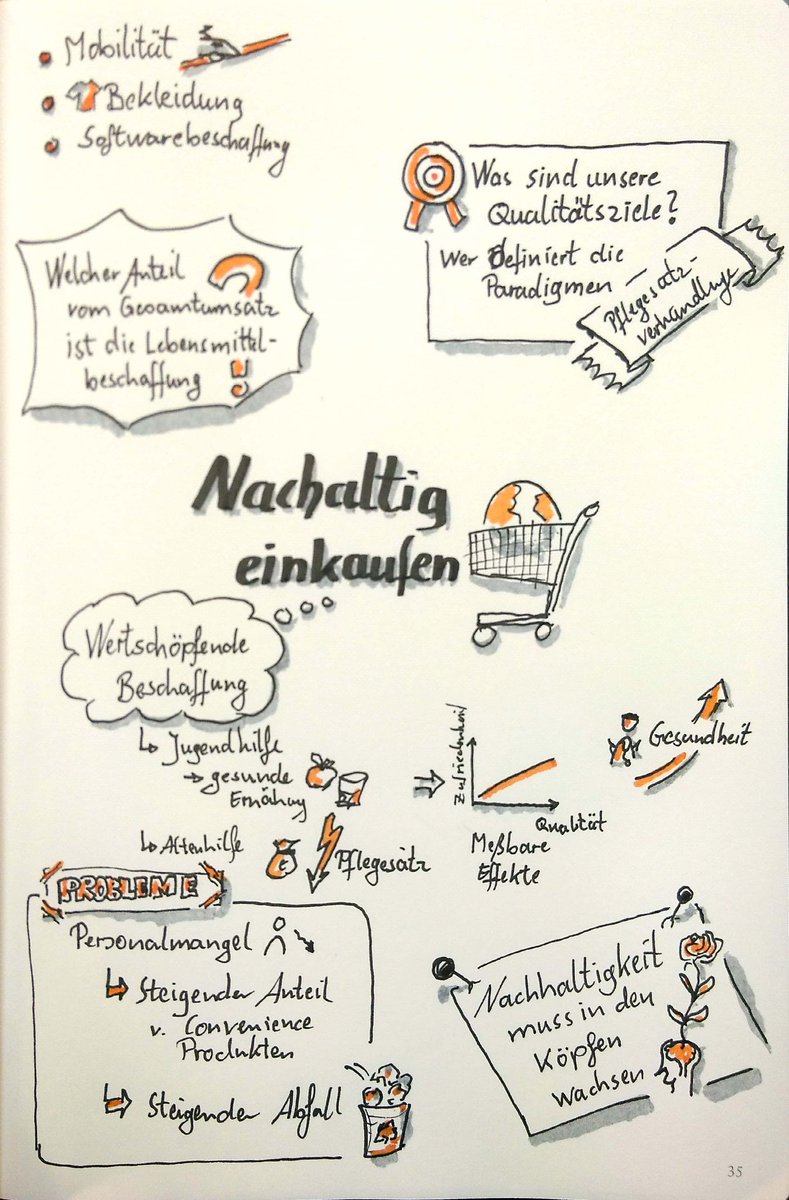 Mobilität
Bekleidung
Softwarebeschaffung
Was sind unsere
Qualitätsziele?
Wer Definiert die
Paradigmen
Pflegesatz-
verhandlung
Welcher Anteil
vom Gesamtumsatz
ist die Lebensmittel-
beschaffung
Nachaltig
einkaufen
Wertschöpfende
Beschaffung
Jugendhilfe
gesunde
Ernährung
Altenhilfe
€
Pflegesatz
Zufriedenheit
Qualität
Meßbare
Effekte
Gesundheit
PROBLEME
Personalmangel
Steigender Anteil
v. Convenience
Produkten
Steigender Abfall
Nachhaltigkeit
muss in den
Köpfen
wachsen
35